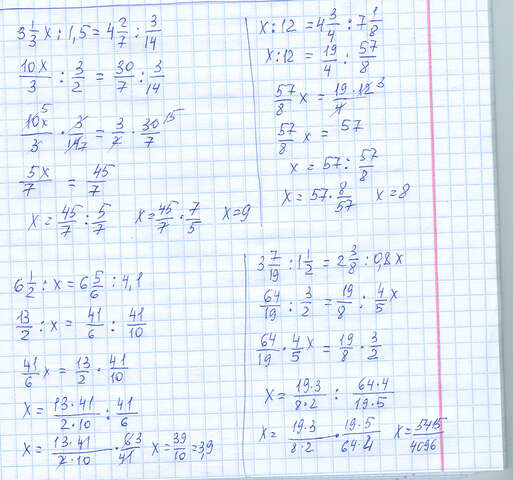 3 1/3 x : 1,5 = 4 2/7 : 3/14
10x/3 : 3/2 = 30/7 : 3/14
10x/3 · 3/14 = 3/2 · 30/7
5x/7 = 45/7
x = 45/7 : 5/7 x = 45/7 · 7/5 x = 9
x : 12 = 4 3/4 : 7 1/8
x : 12 = 19/4 : 57/8
57/8 x = 19·12/4 3
57/8 x = 57
x = 57 : 57/8
x = 57 · 8/57 x = 8
6 1/2 : x = 6 5/6 : 4,1
13/2 : x = 41/6 : 41/10
41/6 x = 13/2 · 41/10
x = 13·41/2·10 : 41/6
x = 13·41/2·10 · 63/41 x = 39/10 = 3,9
3 7/19 : 1 1/2 = 2 3/8 : 0,8x
64/19 : 3/2 = 19/8 : 4/5 x
64/19 · 4/5 x = 19/8 · 3/2
x = 19·3/8·2 : 64·4/19·5
x = 19·3/8·2 · 19·5/64·4 x = 5415/4096